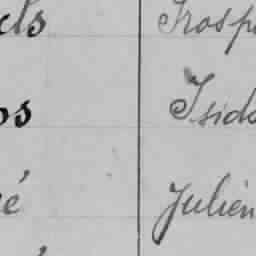 cls Prosp
os Isido
é Julien